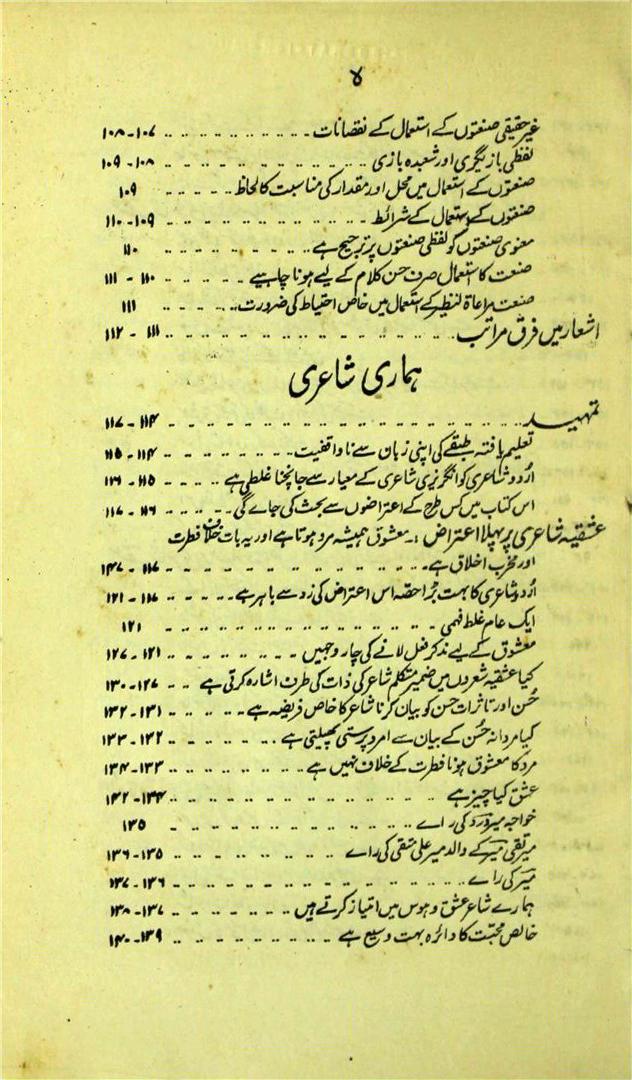 ۷
غیر حقیقی صنعتوں کے استعمال کے نقصانات ۱۰۷-۱۰۸
لفظی بازیگری اور شعبدہ بازی ۱۰۸-۱۰۹
صنعتوں کے استعمال میں محل اور مقدار کی مناسبت کا لحاظ ۱۰۹
صنعتوں کے استعمال کے شرائط ۱۰۹-۱۱۰
معنوی صنعتوں کو لفظی صنعتوں پر ترجیح ہے ۱۱۰
صنعت کا استعمال صرف حسن کلام کے لیے ہونا چاہیے ۱۱۰-۱۱۱
صنعت مراعاۃ النظیر کے استعمال میں خاص احتیاط کی ضرورت ۱۱۱
اشعار میں فرق مراتب ۱۱۱-۱۱۲
ہماری شاعری
تمہید ۱۱۴-۱۱۷
تعلیم یافتہ طبقے کی اپنی زبان سے ناواقفیت ۱۱۴-۱۱۵
اردو شاعری کو انگریزی شاعری کے معیار سے جانچنا غلطی ہے ۱۱۵-۱۱۶
اس کتاب میں کس طرح کے اعتراضوں سے بحث کی جاے گی ۱۱۶-۱۱۷
عشقیہ شاعری پر پہلا اعتراض :۔ معشوق ہمیشہ مرد ہوتا ہے اور یہ بات خلاف فطرت
اور مخرب اخلاق ہے ۱۱۷-۱۴۷
اُردو شاعری کا بہت بڑا حصہ اس اعتراض کی زد سے باہر ہے ۱۱۷-۱۲۱
ایک عام غلط فہمی ۱۲۱
معشوق کے لیے مذکر فعل لانے کی چار وجہیں ۱۲۱-۱۲۷
کیا عشقیہ شعروں میں ضمیر متکلم شاعر کی ذات کی طرف اشارہ کرتی ہے ۱۲۷-۱۳۰
حُسن اور تاثرات حسن کو بیان کرنا شاعر کا خاص فریضہ ہے ۱۳۱-۱۳۲
کیا مردانہ حُسن کے بیان سے امرد پرستی پھیلتی ہے ۱۳۲-۱۳۳
مرد کا معشوق ہونا فطرت کے خلاف نہیں ہے ۱۳۳-۱۳۴
عشق کیا چیز ہے ۱۳۴-۱۴۲
خواجہ میر درد کی راے ۱۳۵
میر تقی میر کے والد میر علی متقی کی راے ۱۳۵-۱۳۶
میر کی راے ۱۳۶-۱۳۷
ہمارے شاعر عشق و ہوس میں امتیاز کرتے ہیں ۱۳۷-۱۳۸
خالص محبّت کا دائرہ بہت وسیع ہے ۱۳۹-۱۴۰